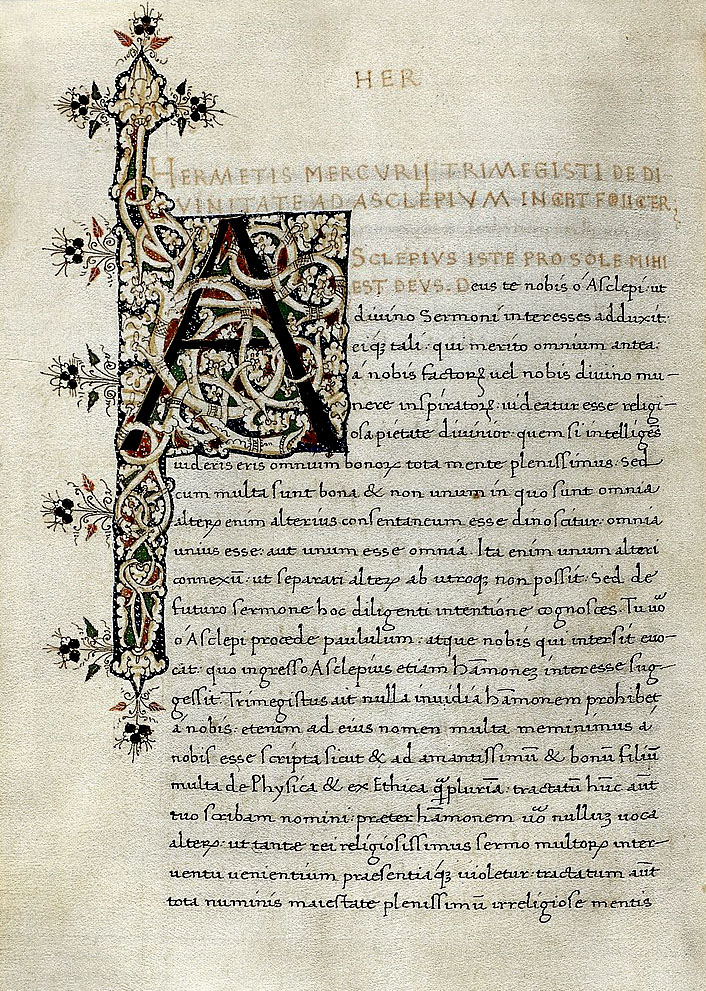 HER
HERMETIS MERCVRIJ TRIMEGISTI DE DI-
VINITATE AD ASCLEPIVM INCIPIT FOELICITER:
A
SCLEPIVS ISTE PRO SOLE MIHI
EST DEVS. Deus te nobis o Asclepi: ut
diuino Sermoni interesses adduxit:
eiqꝫ tali: qui merito omnium antea:
a nobis factoꝝ uel nobis diuino mu-
nere inspiratoꝝ: uideatur esse religi-
osa pietate diuinior: quem si intelligēs
uideris eris omnium bonoꝝ tota mente plenissimus. Sed
cum multa sunt bona & non unum in quo sunt omnia
alteꝝ enim alterius consentaneum esse dinoscitur: omnia
unius esse: aut unum esse omnia. Ita enim unum alteri
connexū: ut separari alteꝝ ab utroqꝫ non possit. Sed de
futuro sermone hoc diligenti intentione cognosces. Tu uō
o Asclepi procede paululum: atque nobis qui intersit euo-
cat: quo ingresso Asclepius etiam hāmonem interesse sug-
gessit. Trimegistus ait nulla inuidia hāmonem prohibet
a nobis: etenim ad eius nomen multa meminimus a
nobis esse scripta sicut & ad amantissimū & bonū filiū
multa de Physica & ex Ethica pluria: tractatū hūc aūt
tuo scribam nomini: preter hāmonem uō nulluꝫ uoca
alteꝝ: ut tante rei religiosissimus sermo multoꝝ inter-
uentu uenientium praesentiaqꝫ uioletur: tractatum aūt
tota numinis maiestate plenissimū irreligiose mentis